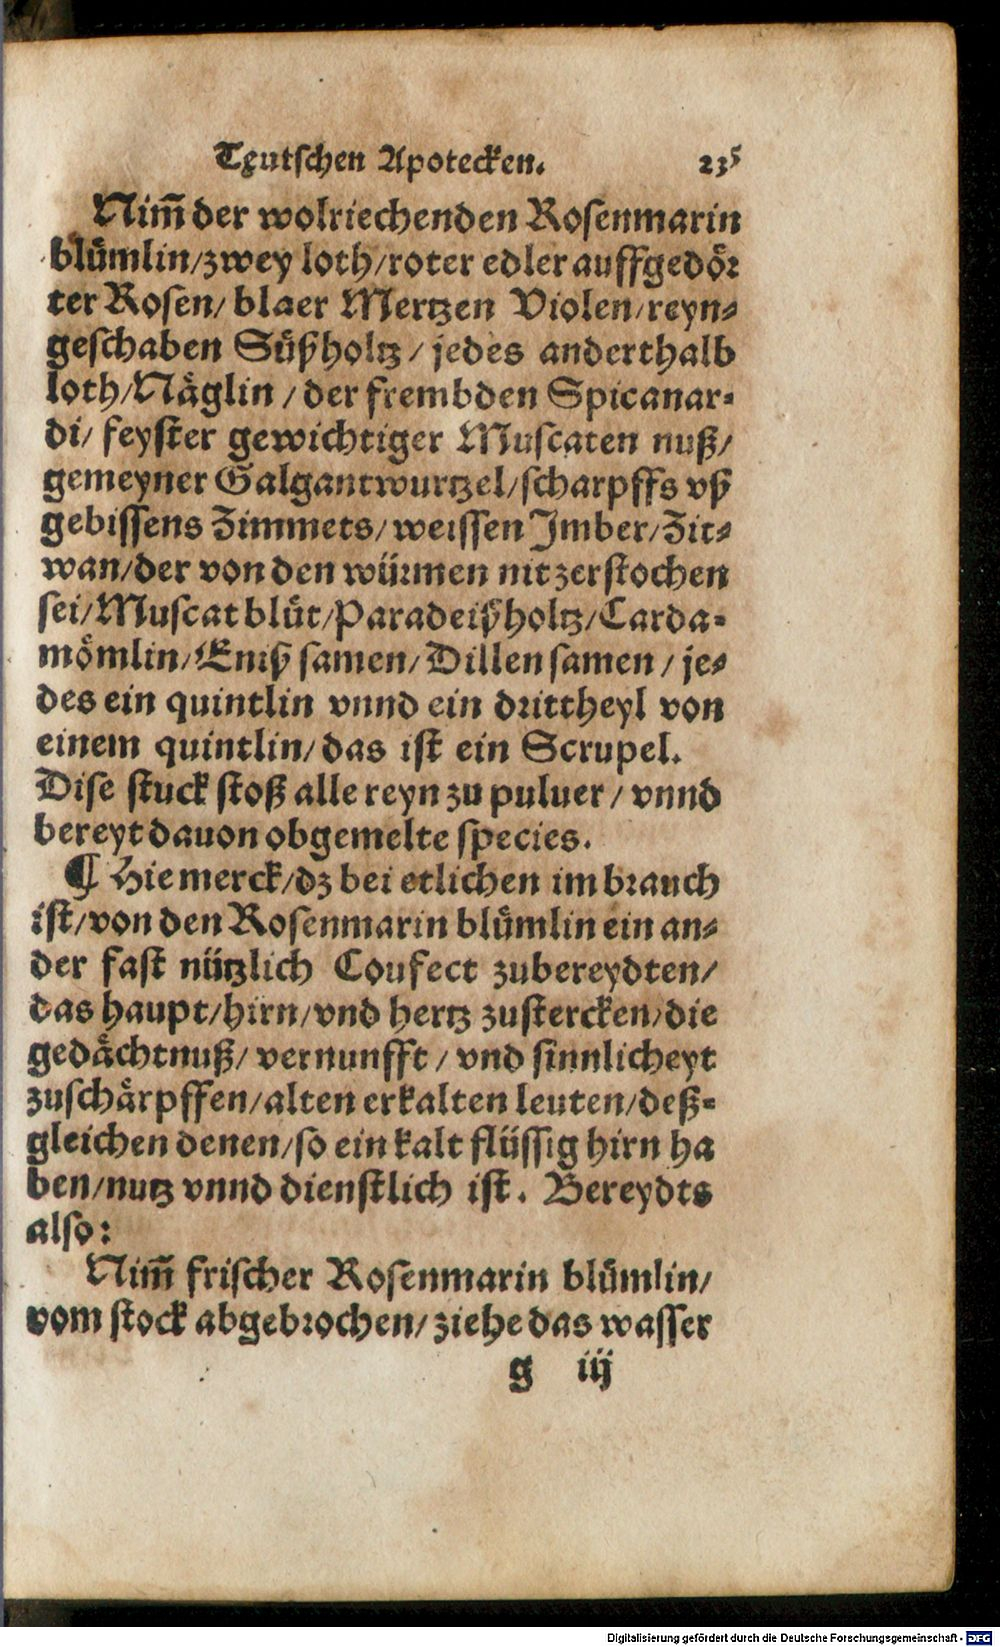 Teutschen Apotecken. 235
Nim̃ der wolriechenden Rosenmarin
blümlin/zwey loth/roter edler auffgedör
ter Rosen/ blaer Mertzen Violen/reyn-
geschaben Süßholtz / jedes anderthalb
loth/Näglin / der frembden Spicanar-
di/ feyster gewichtiger Muscaten nuß/
gemeyner Galgantwurtzel/scharpffs vß
gebissens Zimmets/weissen Jmber/Zit-
wan/der von den würmen nit zerstochen
sei/Muscat blüt/Paradeißholtz/Carda-
mömlin/Eniß samen/Dillen samen / je-
des ein quintlin vnnd ein drittheyl von
einem quintlin/das ist ein Scrupel.
Dise stuck stoß alle reyn zu puluer / vnnd
bereyt dauon obgemelte species.
¶ Hie merck/dz bei etlichen im brauch
ist/von den Rosenmarin blümlin ein an-
der fast nützlich Coufect zubereydten/
das haupt/hirn/vnd hertz zustercken/die
gedächtnuß/ vernunfft / vnd sinnlicheyt
zuschärpffen/alten erkalten leuten/deß-
gleichen denen/so ein kalt flüssig hirn ha
ben/nutz vnnd dienstlich ist. Bereydts
also:
Nim̃ frischer Rosenmarin blümlin/
vom stock abgebrochen/ziehe das wasser
g iij
Digitalisierung gefördert durch die Deutsche Forschungsgemeinschaft - DFG